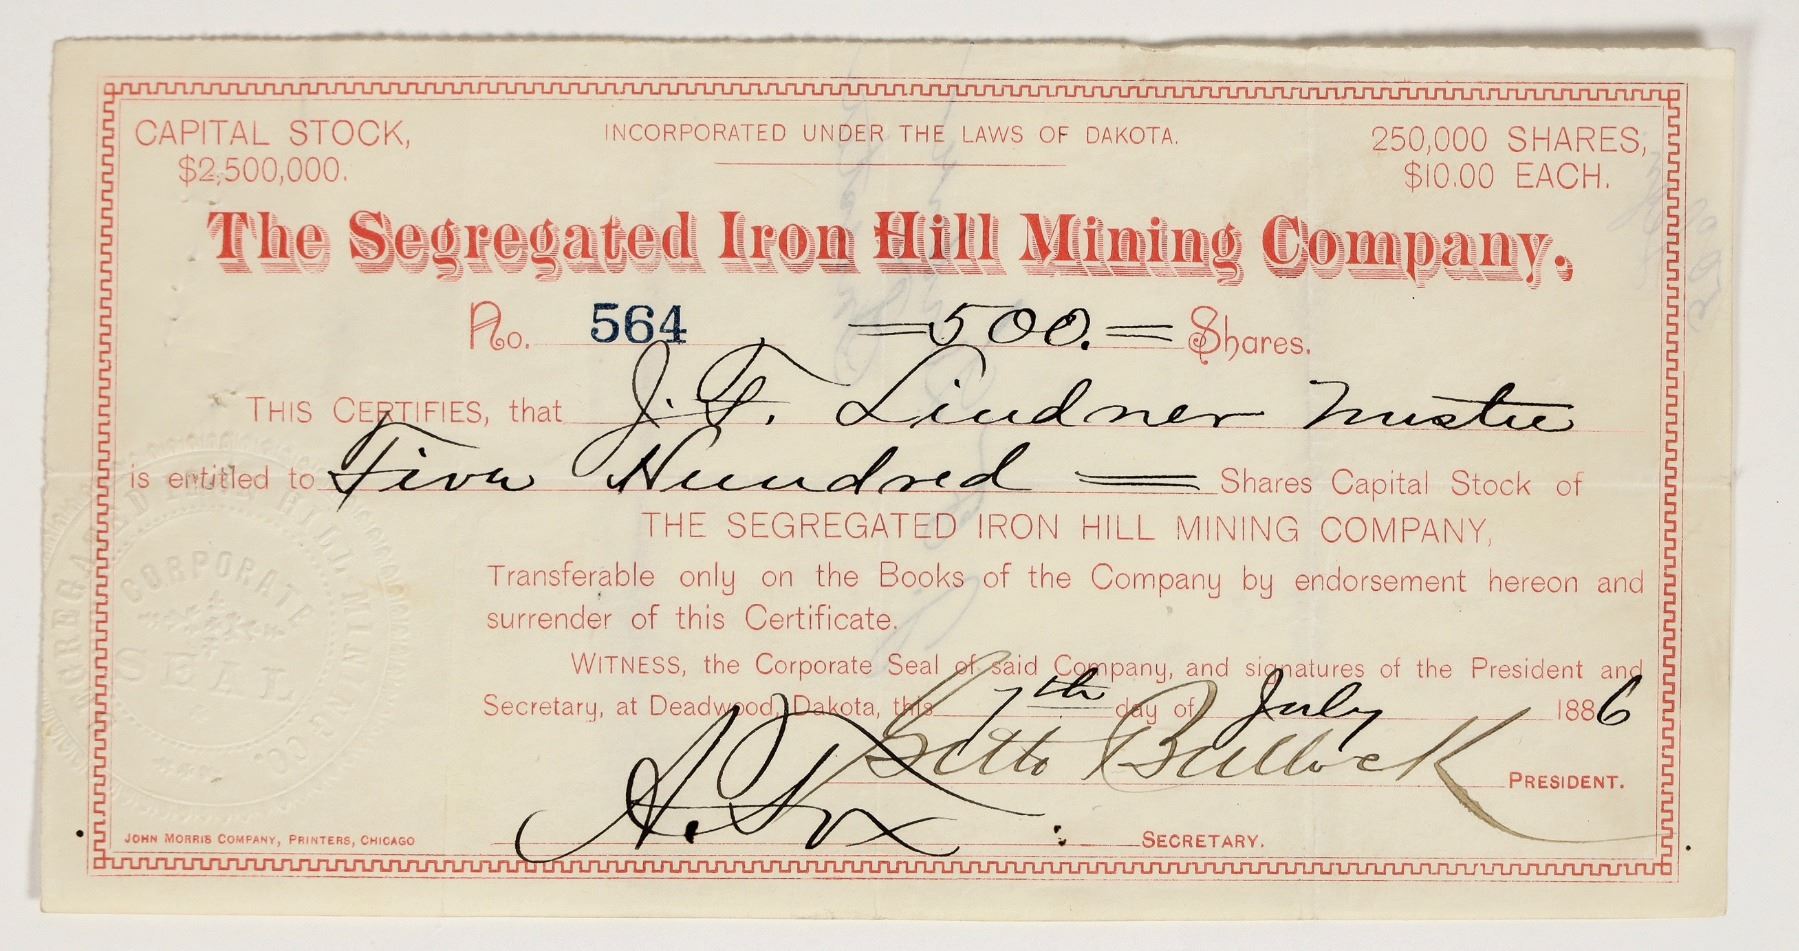 CAPITAL STOCK,
$2,500,000.
INCORPORATED UNDER THE LAWS OF DAKOTA.
250,000 SHARES,
$10.00 EACH.
The Segregated Iron Hill Mining Company.
No. 564 = 500. = Shares.
THIS CERTIFIES, that J. F. Lindner Trustee
is entitled to Five Hundred = Shares Capital Stock of
THE SEGREGATED IRON HILL MINING COMPANY,
Transferable only on the Books of the Company by endorsement hereon and
surrender of this Certificate.
WITNESS, the Corporate Seal of said Company, and signatures of the President and
Secretary, at Deadwood, Dakota, this 7th day of July 1886
Seth Bullock PRESIDENT.
A. Fox SECRETARY.
SEGREGATED IRON HILL MINING CO.
CORPORATE
SEAL
JOHN MORRIS COMPANY, PRINTERS, CHICAGO